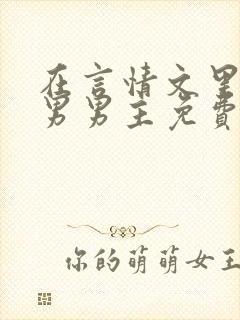 在言情文里
男男主免費
你的萌萌女王